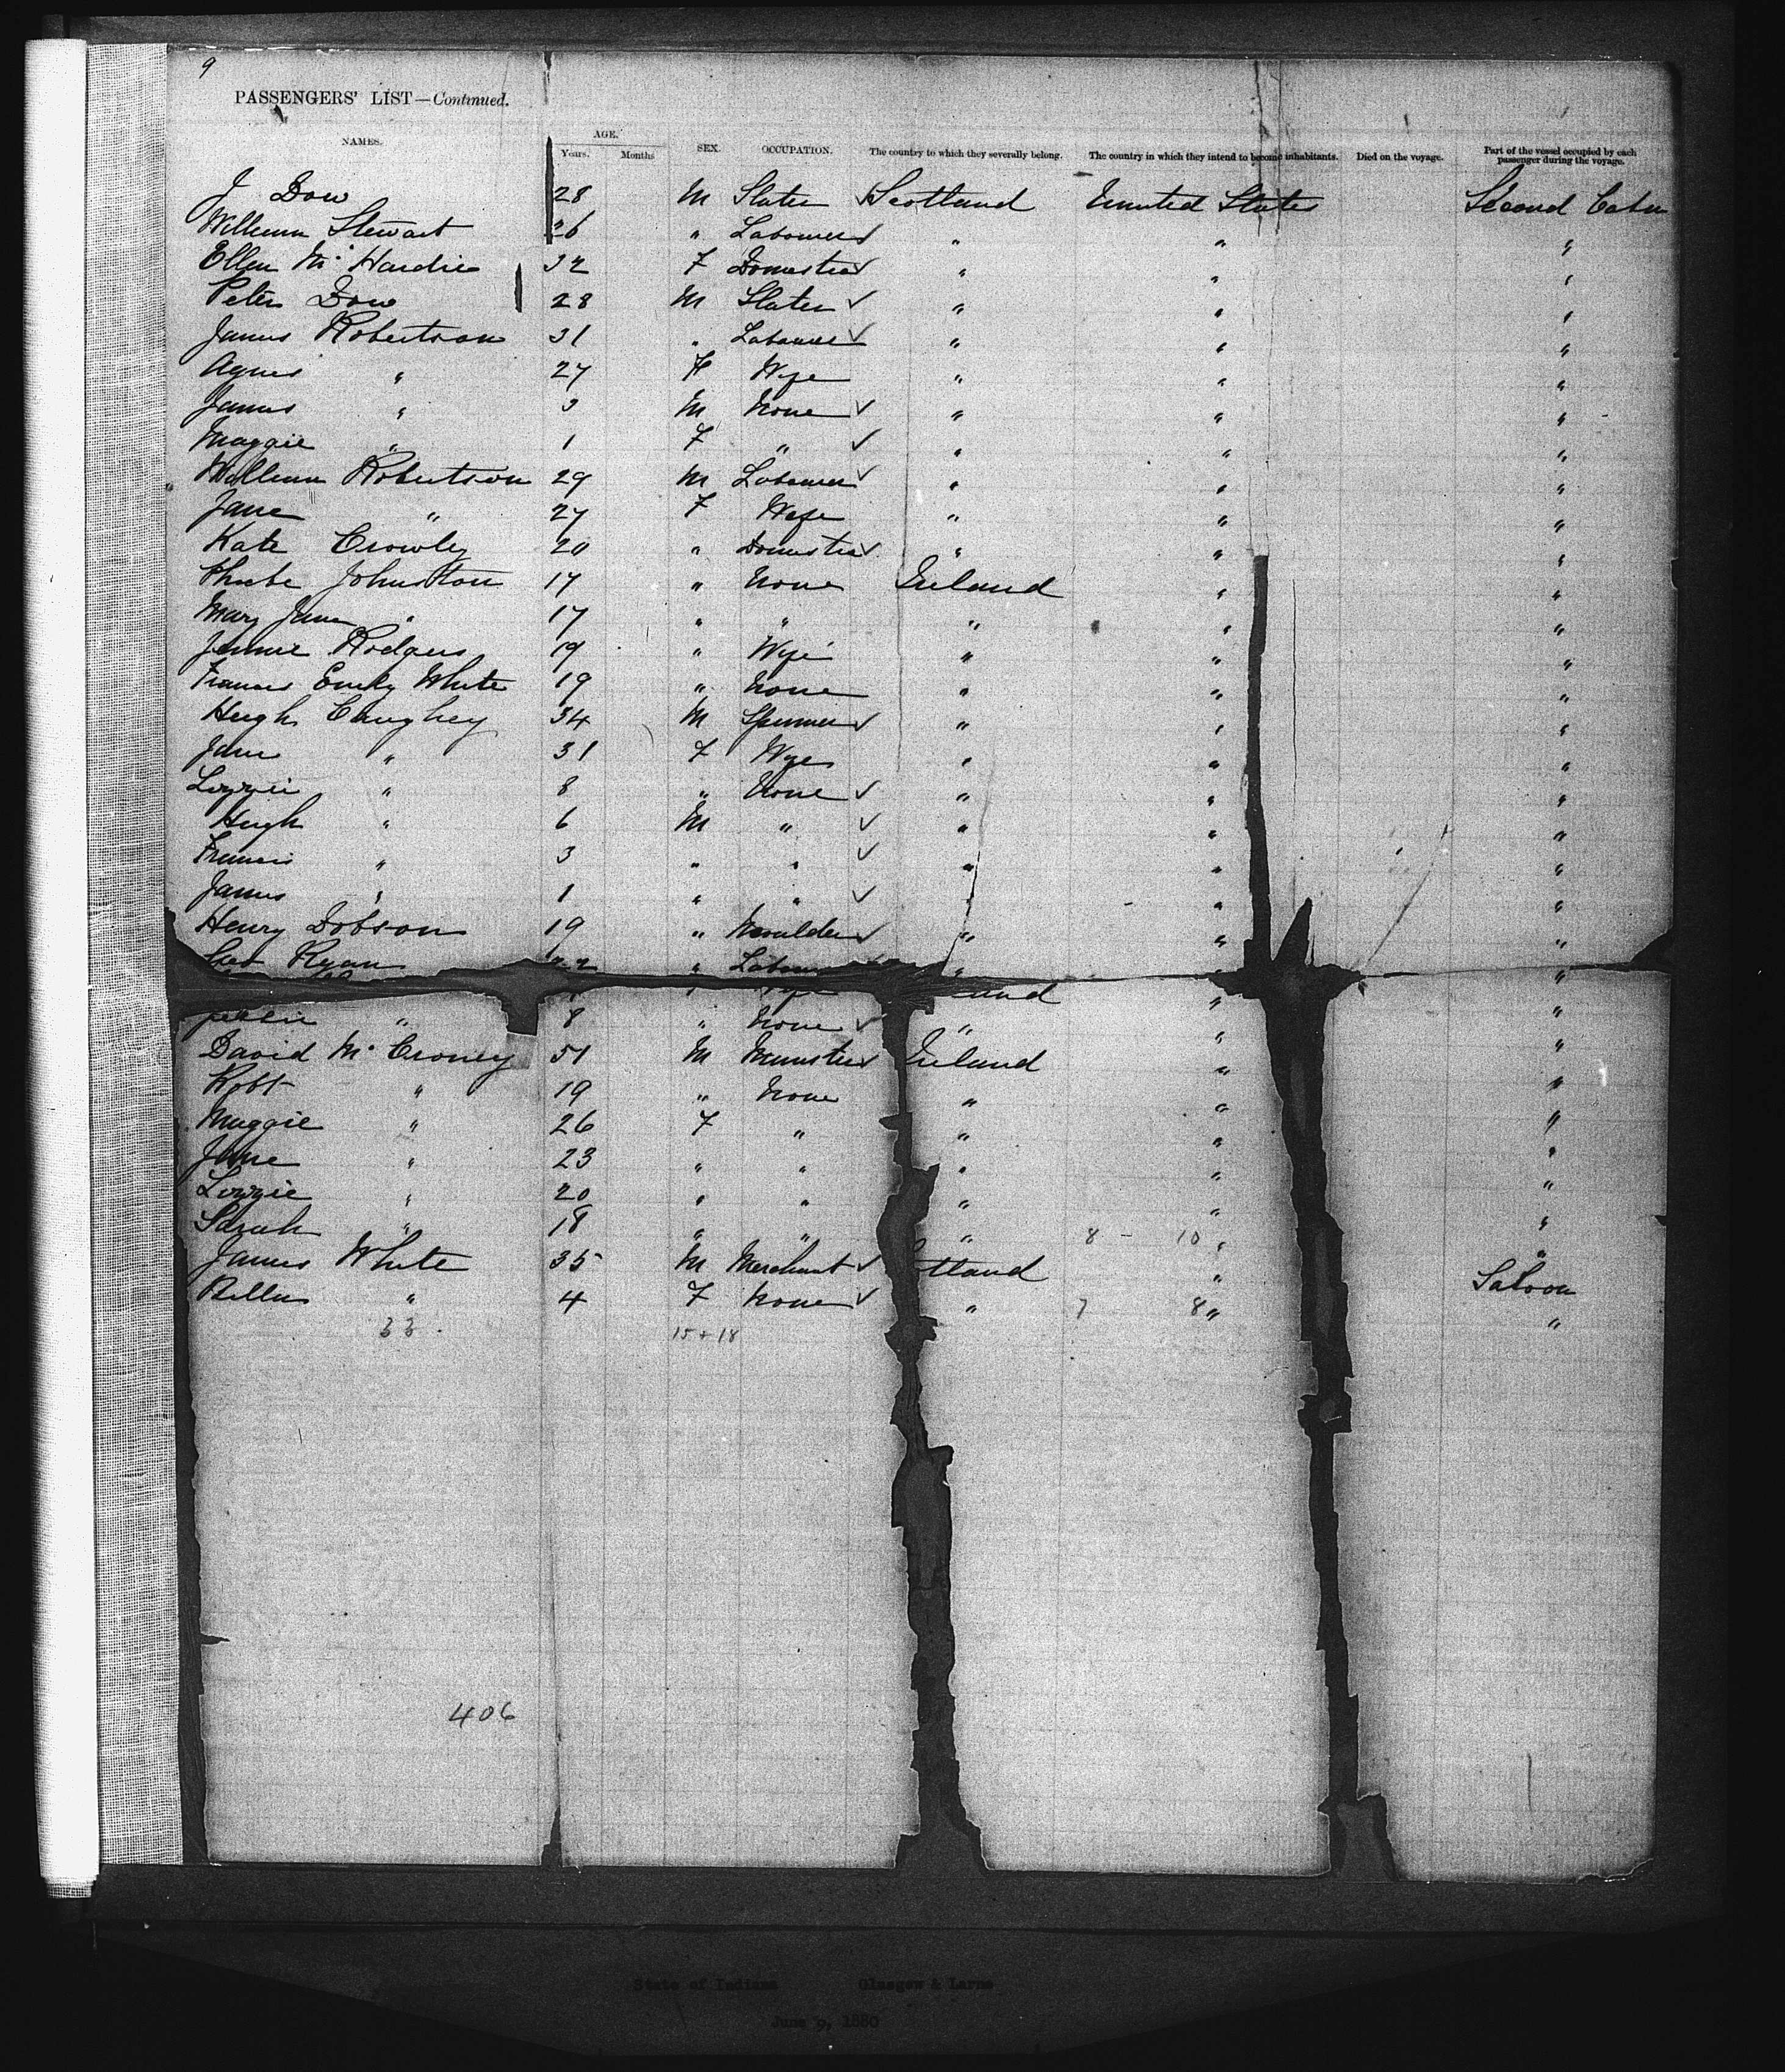 9
PASSENGERS' LIST—Continued.
NAMES. AGE. Years. Months SEX. OCCUPATION. The country to which they severally belong. The country in which they intend to become inhabitants. Died on the voyage. Part of the vessel occupied by each passenger during the voyage.
J Dow 28 M Slater Scotland United States Second Cabin
William Stewart 26 " Labourer " " "
Ellen Mc Hardie 32 F Domestic " " "
Peter Dow 28 M Slater " " "
James Robertson 31 " Labourer " " "
Agnes " 27 F Wife " " "
James " 3 M None " " "
Maggie " 1 F " " " "
William Robertson 29 M Labourer " " "
Jane " 27 F Wife " " "
Kate Crowley 20 " Domestic " " "
Phoebe Johnston 17 " None Ireland " "
Mary Jane " 17 " " " " "
Jennie Rodgers 19 " Wife " " "
Frances Emily White 19 " None " " "
Hugh Caughey 34 M Spinner " " "
Jane " 31 F Wife " " "
Lizzie " 8 " None " " "
Hugh " 6 M " " " "
Francis " 3 " " " " "
James " 1 " " " " "
Henry Dobson 19 " Moulder " " "
Ryan 22 " Labourer " " "
Wife land " "
Jessie " 8 " None " " "
David Mc Croney 51 M Minister Ireland " "
Robt " 19 " None " " "
Maggie " 26 F " " " "
Jane " 23 " " " " "
Lizzie " 20 " " " " "
Sarah " 18 " " " 8 - 10 " "
James White 35 M Merchant tland " Saloon
Bella " 4 F None " 7 8 " "
33. 15+18
406
State of Indiana Glasgow & Larne
June 9, 1880